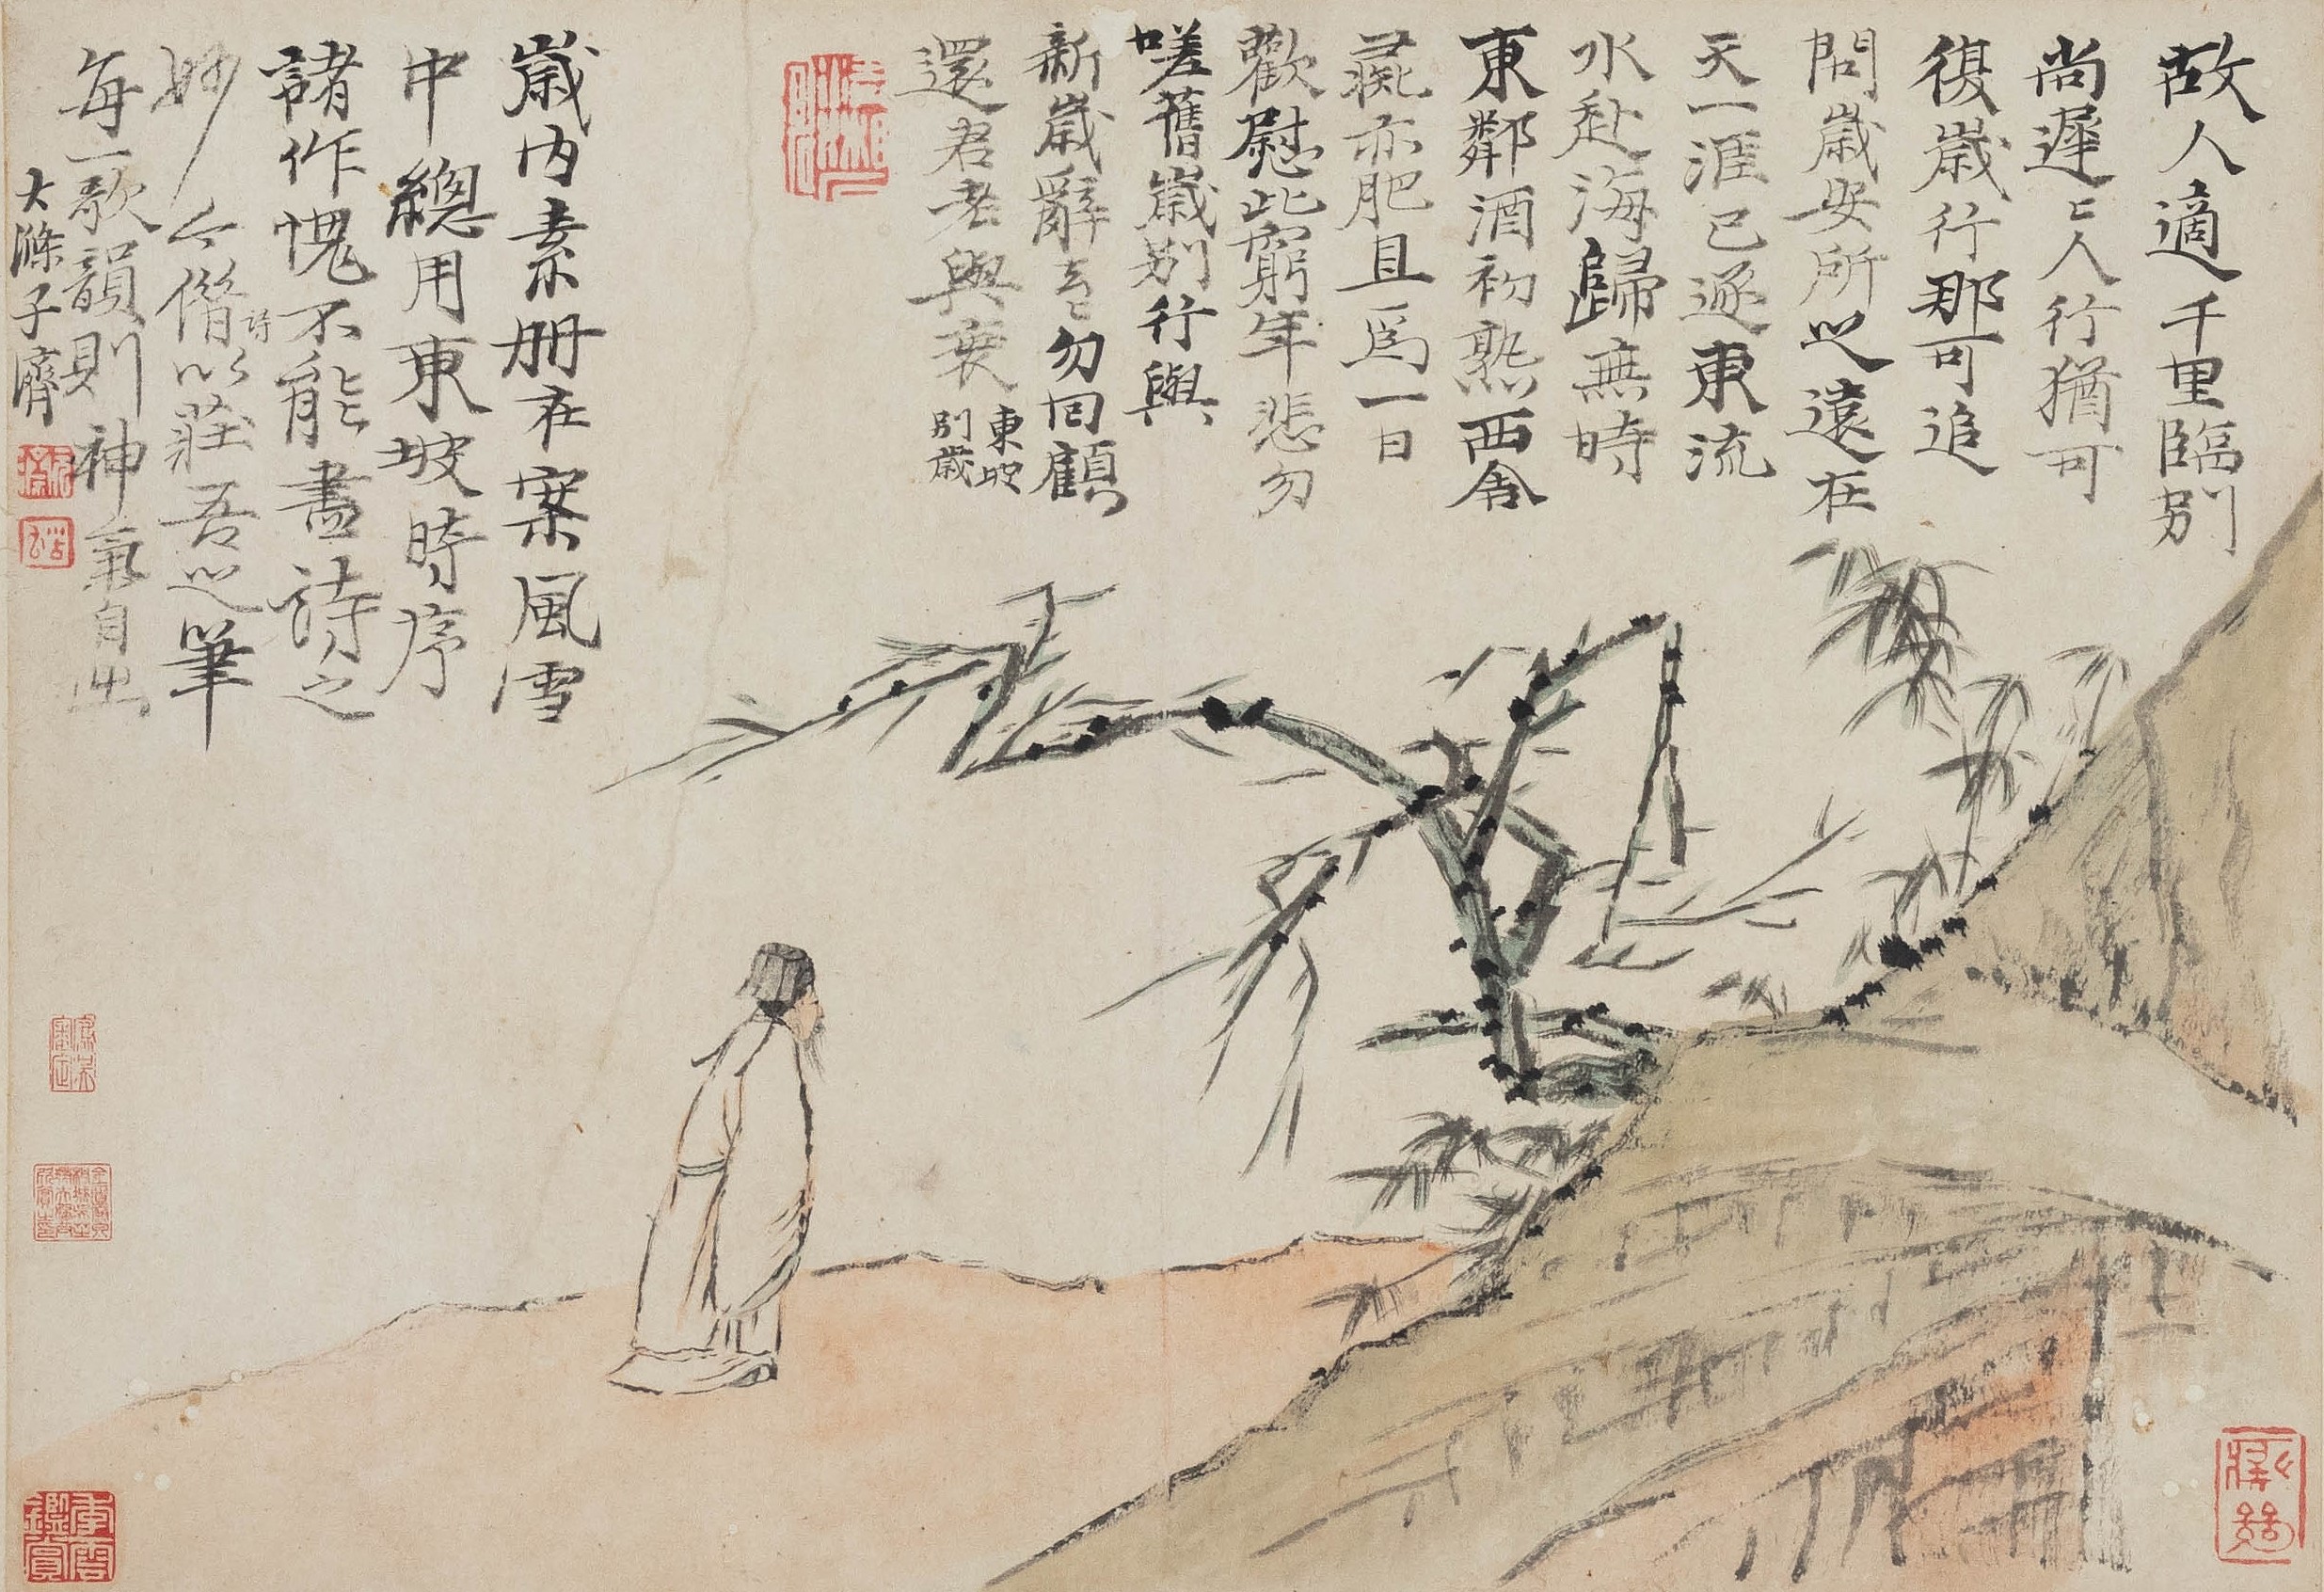 故人適千里臨別
尚遲〻人行猶可
復歲行那可追
問歲安所之遠在
天一涯已逐東流
水赴海歸無時
東鄰酒初熟西舍
彘亦肥且為一日
歡慰此窮年悲勿
嗟舊歲別行與
新歲辭去〻勿回顧
還君老與衰
東坡
別歲
歲內素冊在案風雪
中總用東坡時序
諸作愧不能盡詩之
妙今偹以莊吾之筆
詩
每一歌韻則神氣自出
大滌子濟